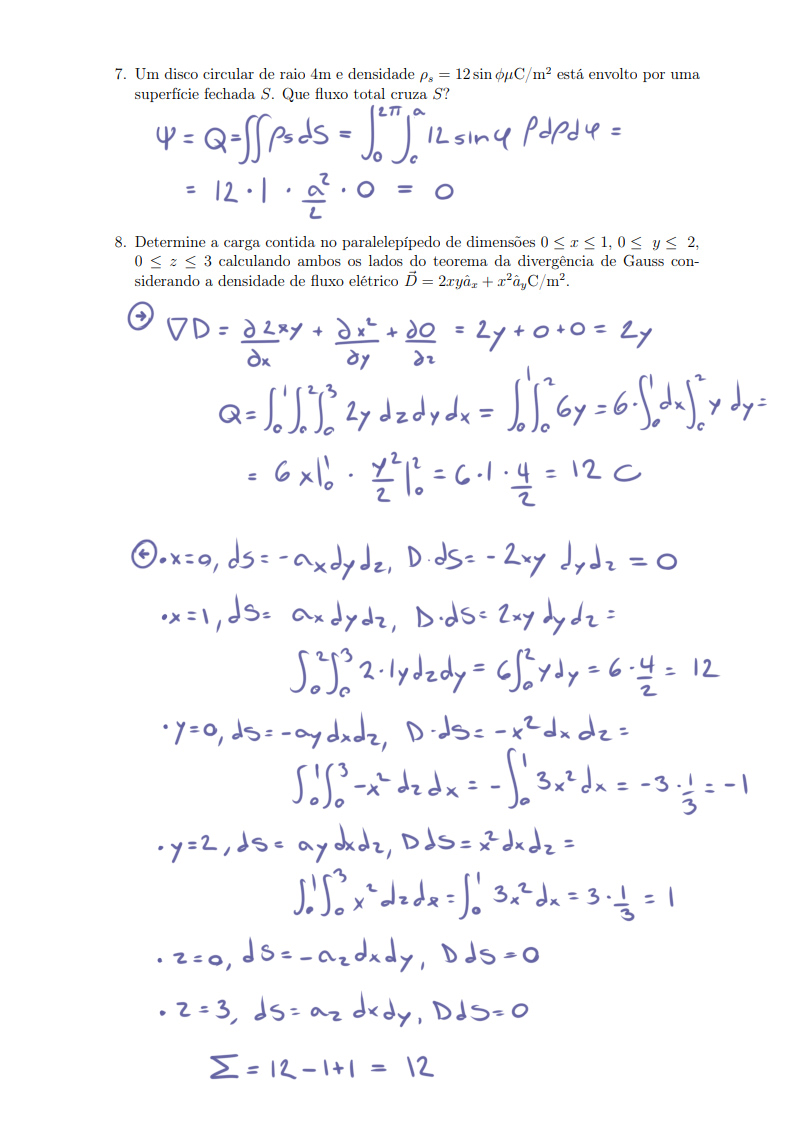 7. Um disco circular de raio 4m e densidade ρₛ = 12 sin ϕμC/m² está envolto por uma
superfície fechada S. Que fluxo total cruza S?
Ψ = Q = ∬ ρs dS = ∫₀^2π ∫₀^a 12 sin φ ρ dρ dφ =
= 12 · 1 · a²/2 · 0 = 0
8. Determine a carga contida no paralelepípedo de dimensões 0 ≤ x ≤ 1, 0 ≤ y ≤ 2,
0 ≤ z ≤ 3 calculando ambos os lados do teorema da divergência de Gauss con-
siderando a densidade de fluxo elétrico D⃗ = 2xyâₓ + x²â_yC/m².
→ ∇D = ∂2xy/∂x + ∂x²/∂y + ∂0/∂z = 2y + 0 + 0 = 2y
Q = ∫₀¹ ∫₀² ∫₀³ 2y dz dy dx = ∫₀¹ ∫₀² 6y = 6 · ∫₀¹ dx ∫₀² y dy =
= 6 x|₀¹ · y²/2|₀² = 6 · 1 · 4/2 = 12 C
← · x=0, ds = -ax dy dz, D · ds = -2xy dy dz = 0
· x=1, ds= ax dy dz, D·ds = 2xy dy dz =
∫₀² ∫₀³ 2·1y dz dy = 6∫₀² y dy = 6 · 4/2 = 12
· y=0, ds = -ay dx dz, D·ds = -x² dx dz =
∫₀¹ ∫₀³ -x² dz dx = -∫₀¹ 3x² dx = -3 · 1/3 = -1
· y=2, ds = ay dx dz, D ds = x² dx dz =
∫₀¹ ∫₀³ x² dz dx = ∫₀¹ 3x² dx = 3 · 1/3 = 1
· z=0, ds = -az dx dy, D ds = 0
· z=3, ds = az dx dy, D ds = 0
Σ = 12 - 1 + 1 = 12